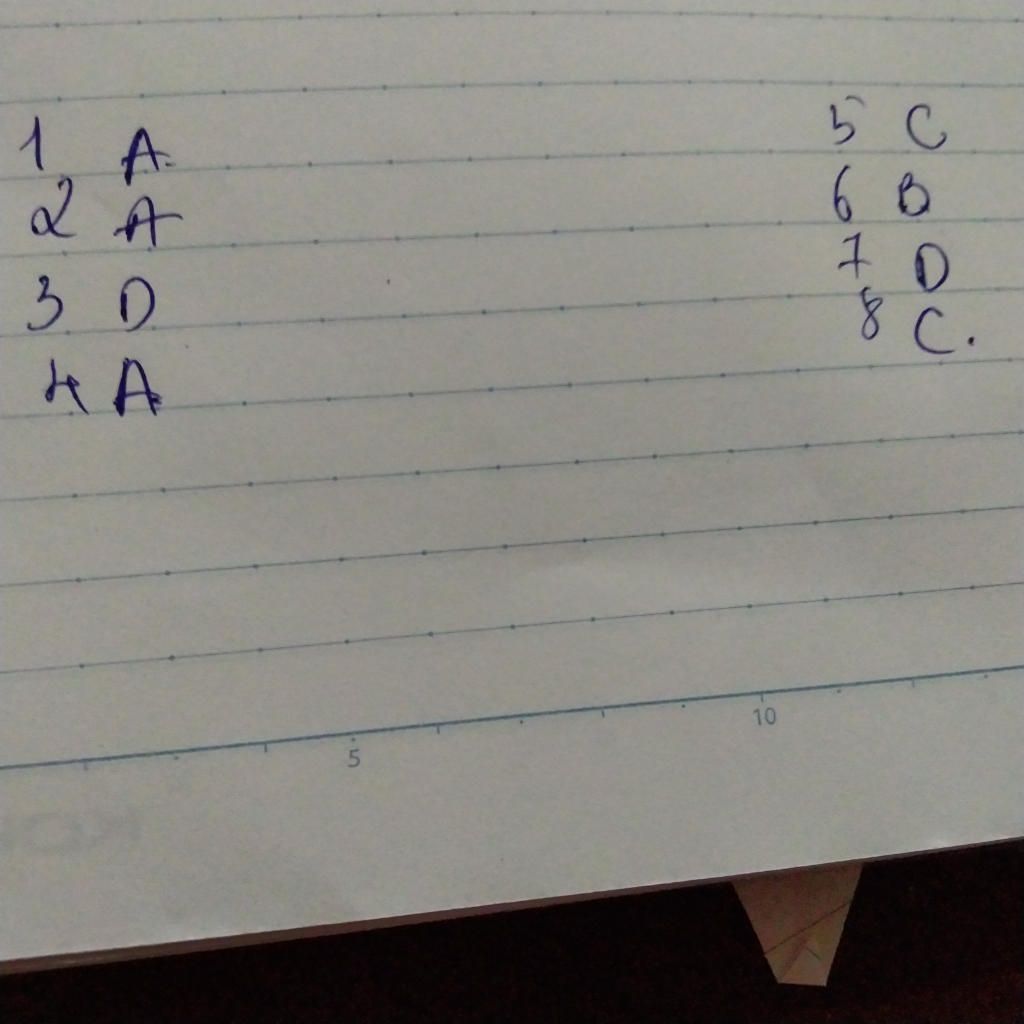 1 A.
2 A
3 D
4 A
5 C
6 B
7 D
8 C.
5 10